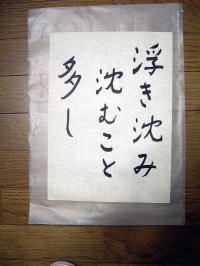 浮き沈み
沈むこと
多し